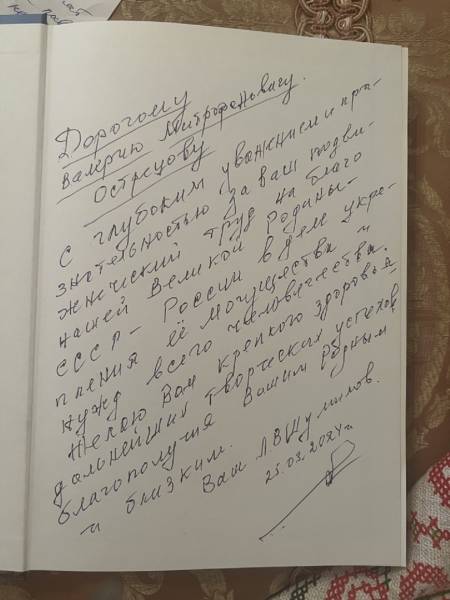 Дорогому
Валерию Митрофановичу
Острецову
С глубоким уважением и при-
знательностью за ваш подви-
жнический труд на благо
нашей Великой Родины-
СССР - России в деле укре-
пления её могущества и
нужд всего человечества.
Желаю Вам крепкого здоровья
дальнейших творческих успехов
благополучия Вашим родным
и близким.
Ваш Л.В.Шумилов.
25.03.2024г